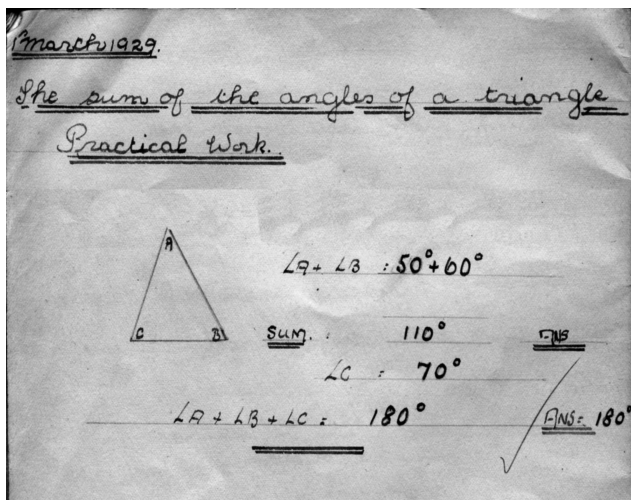 1st March 1929.
The sum of the angles of a triangle
Practical Work.
A
∠A + ∠B = 50° + 60°
C B SUM. = 110° ANS
∠C = 70°
∠A + ∠B + ∠C = 180° ANS = 180°